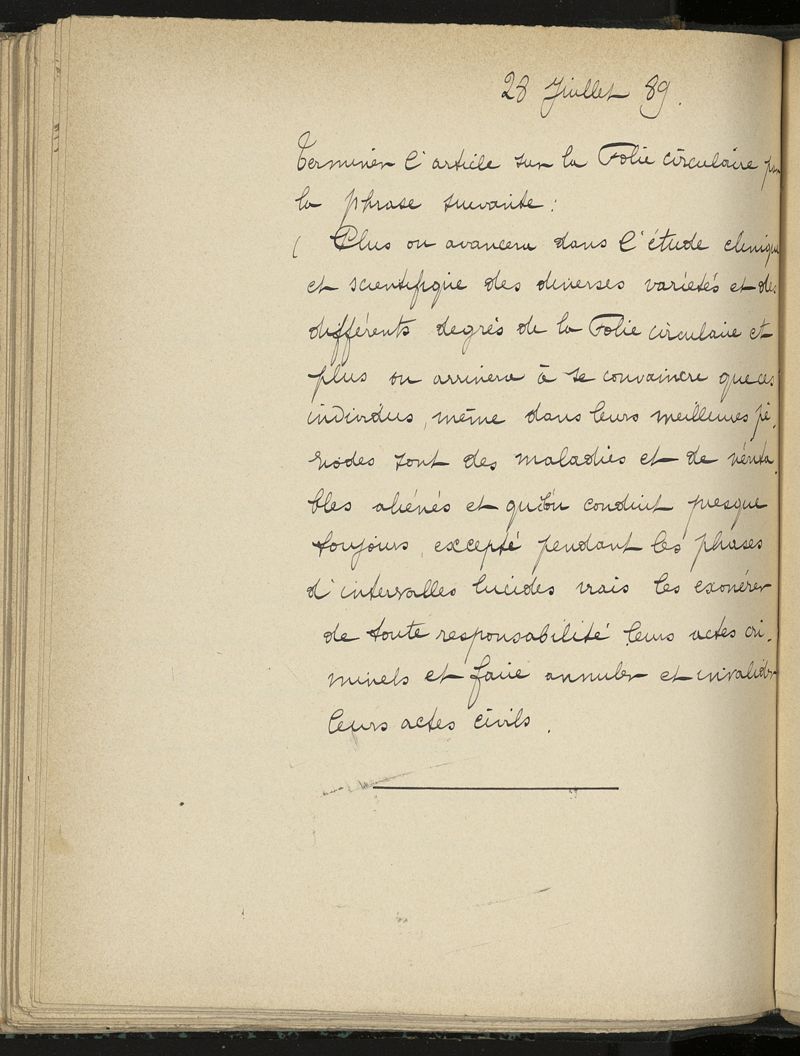 28 Juillet 89.
Terminer l'article sur la Folie circulaire par
la phrase suivante :
( Plus on avancera dans l'étude clinique
et scientifique des diverses variétés et des
différents degrés de la Folie circulaire et
plus on arrivera à se convaincre que ces
individus, même dans leurs meilleures pé-
riodes sont des maladies et de vérita-
bles aliénés et qu'on conduit presque
toujours, excepté pendant les phases
d'intervalles lucides vrais les exonérer
de toute responsabilité leurs actes cri-
minels et faire annuler et invalider
leurs actes civils.